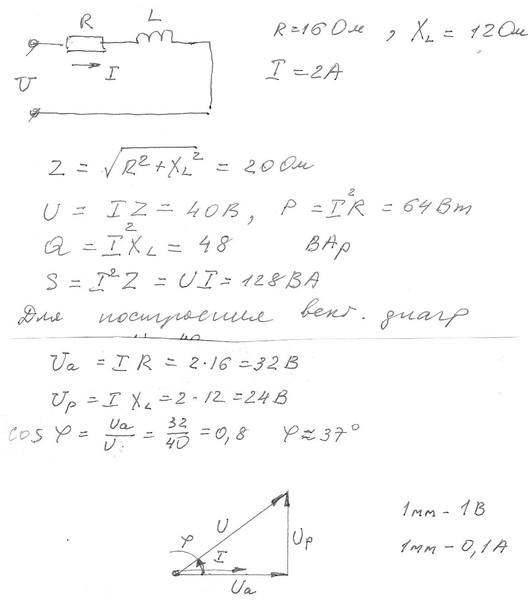 R L
R=16 Ом , X_L = 12 Ом
I
U
I = 2А
Z = √(R² + X_L²) = 20 Ом
U = IZ = 40В , P = I²R = 64Вт
Q = I²X_L = 48 ВАр
S = I²Z = UI = 128ВА
Для построения вект. диагр
Uа = I R = 2·16 = 32В
Uр = I X_L = 2 - 12 = 24В
cos φ = Uа/U = 32/40 = 0,8 φ ≈ 37°
1мм - 1В
U
φ I Uр
1мм - 0,1А
Uа